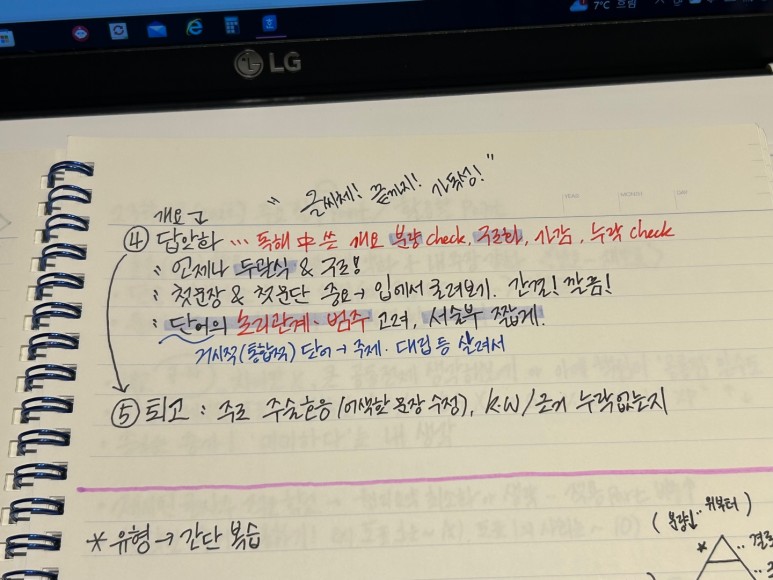 7°C 흐림
LG
"글씨체! 끝까지! 가독성!"
개요 ⊆
④ 답안화 … 독해 中 쓴 개요 분량 check, 구조화, 가감, 누락 check
: 언제나 두괄식 & 구조!
: 첫문장 & 첫문단 중요 → 입에서 굴려보기. 간결! 깔끔!
: 단어의 논리관계·범주 고려, 서술부 짧게.
거시적(통합적) 단어 → 주제·대립 등 살려서
⑤ 퇴고 : 주로 주술호응(어색한 문장 수정), K.W/근거 누락없는지
* 유형 → 간단 복습
위부터 )
*